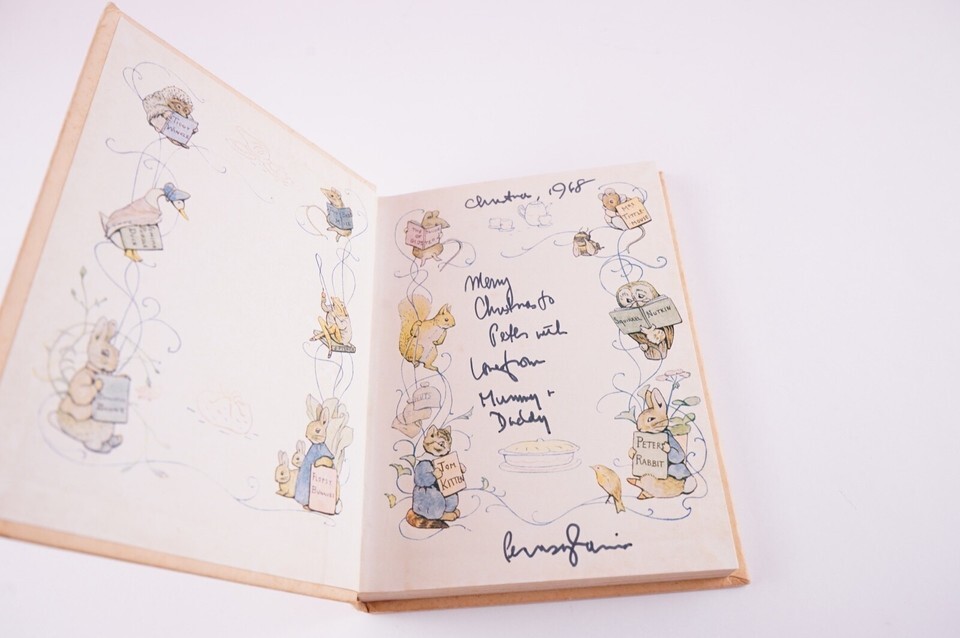 Christmas, 1968
Merry
Christmas to
Peter with
Love from
Mummy +
Daddy
Pennsylvania
TOM
KITTEN
PETER
RABBIT
SQUIRREL NUTKIN
MRS
TITTLE
MOUSE
FLOPSY
BUNNIES